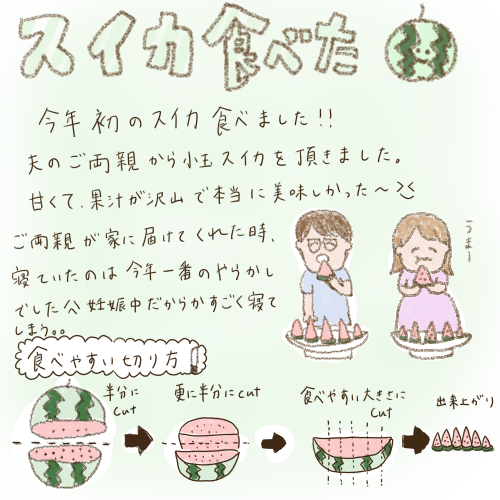 スイカ食べた
今年初のスイカ食べました!!
夫のご両親から小玉スイカを頂きました。
甘くて、果汁が沢山で本当に美味しかった〜
ご両親が家に届けてくれた時、
寝ていたのは今年一番のやらかし
でした 妊娠中だからかすごく寝て
しまう。。
うまー
食べやすい切り方
半分に
cut
更に半分にcut
食べやすい大きさに
cut
出来上がり